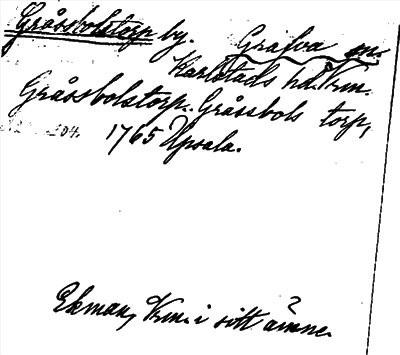 Gråssbolstorp by. Grafva sn.
Karlstads hd. Vrm.
Gråssbolstorp. Gråssbols torp,
1765 Upsala.
Ekman, Vrm. i sitt ämne